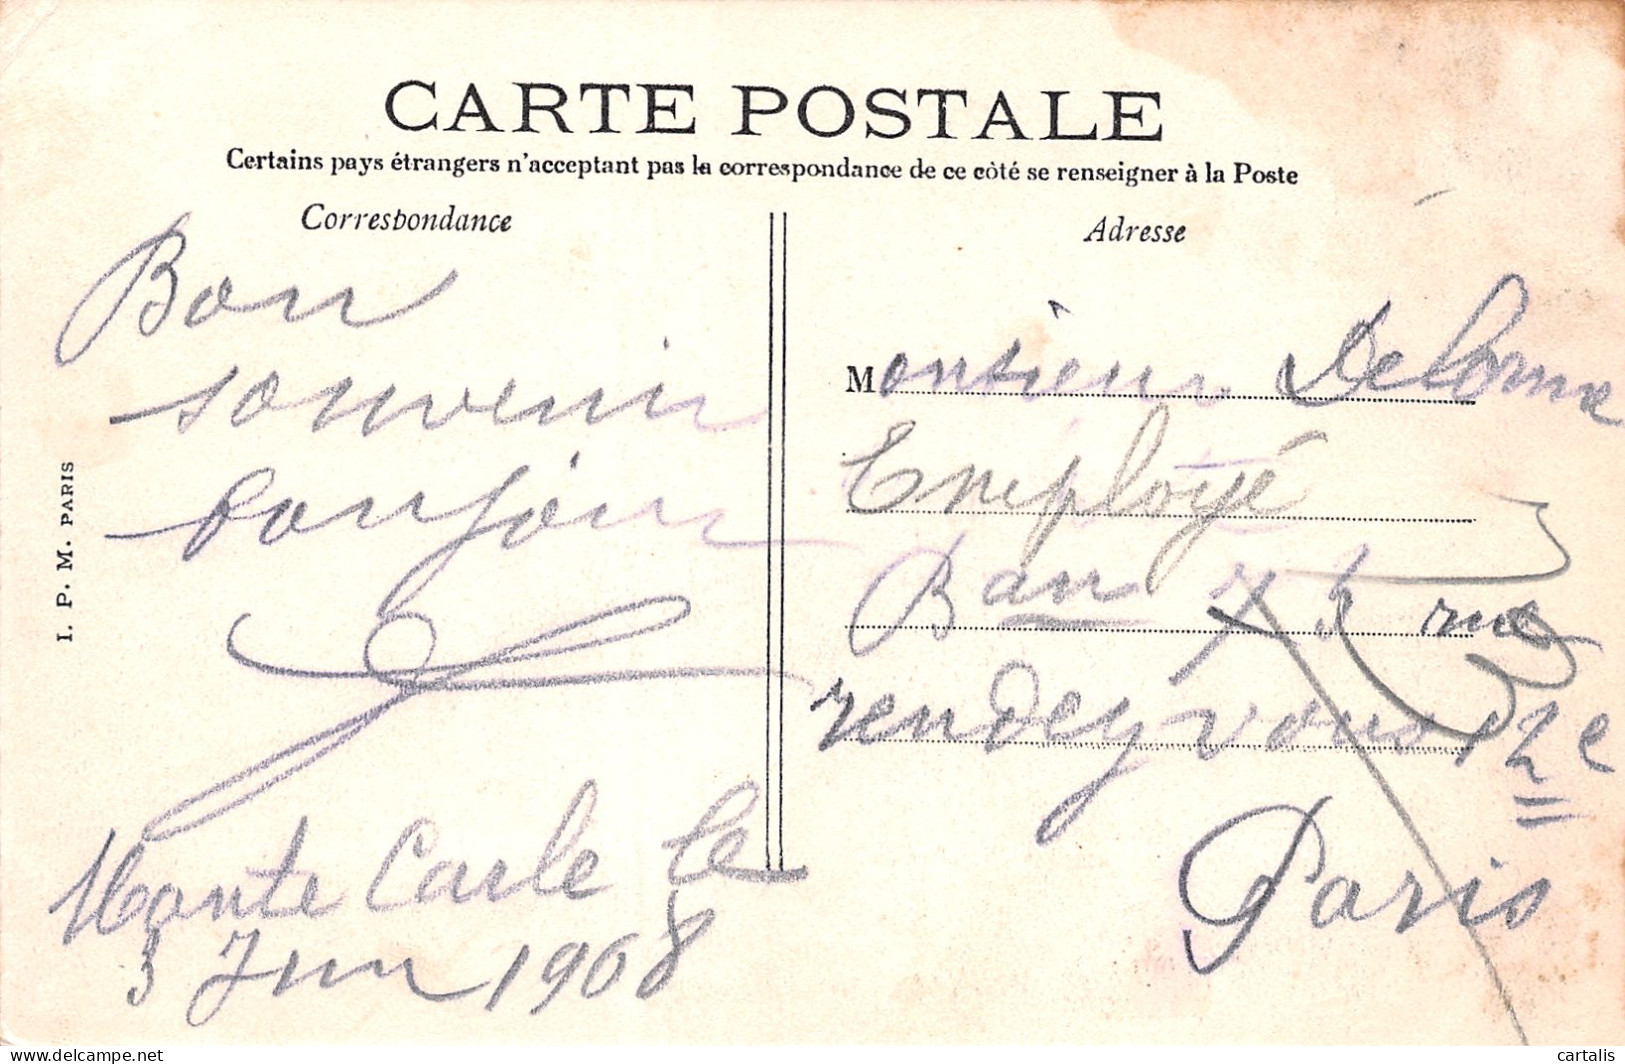 CARTE POSTALE
Certains pays étrangers n'acceptant pas la correspondance de ce côté se renseigner à la Poste
Correspondance
Adresse
Bon
souvenir
bonjour
Monte Carle le
3 Juin 1908
Monsieur Delorme
Employé
rue
rendez vous 12e
Paris
I. P. M. PARIS
delcampe.net
cartalis